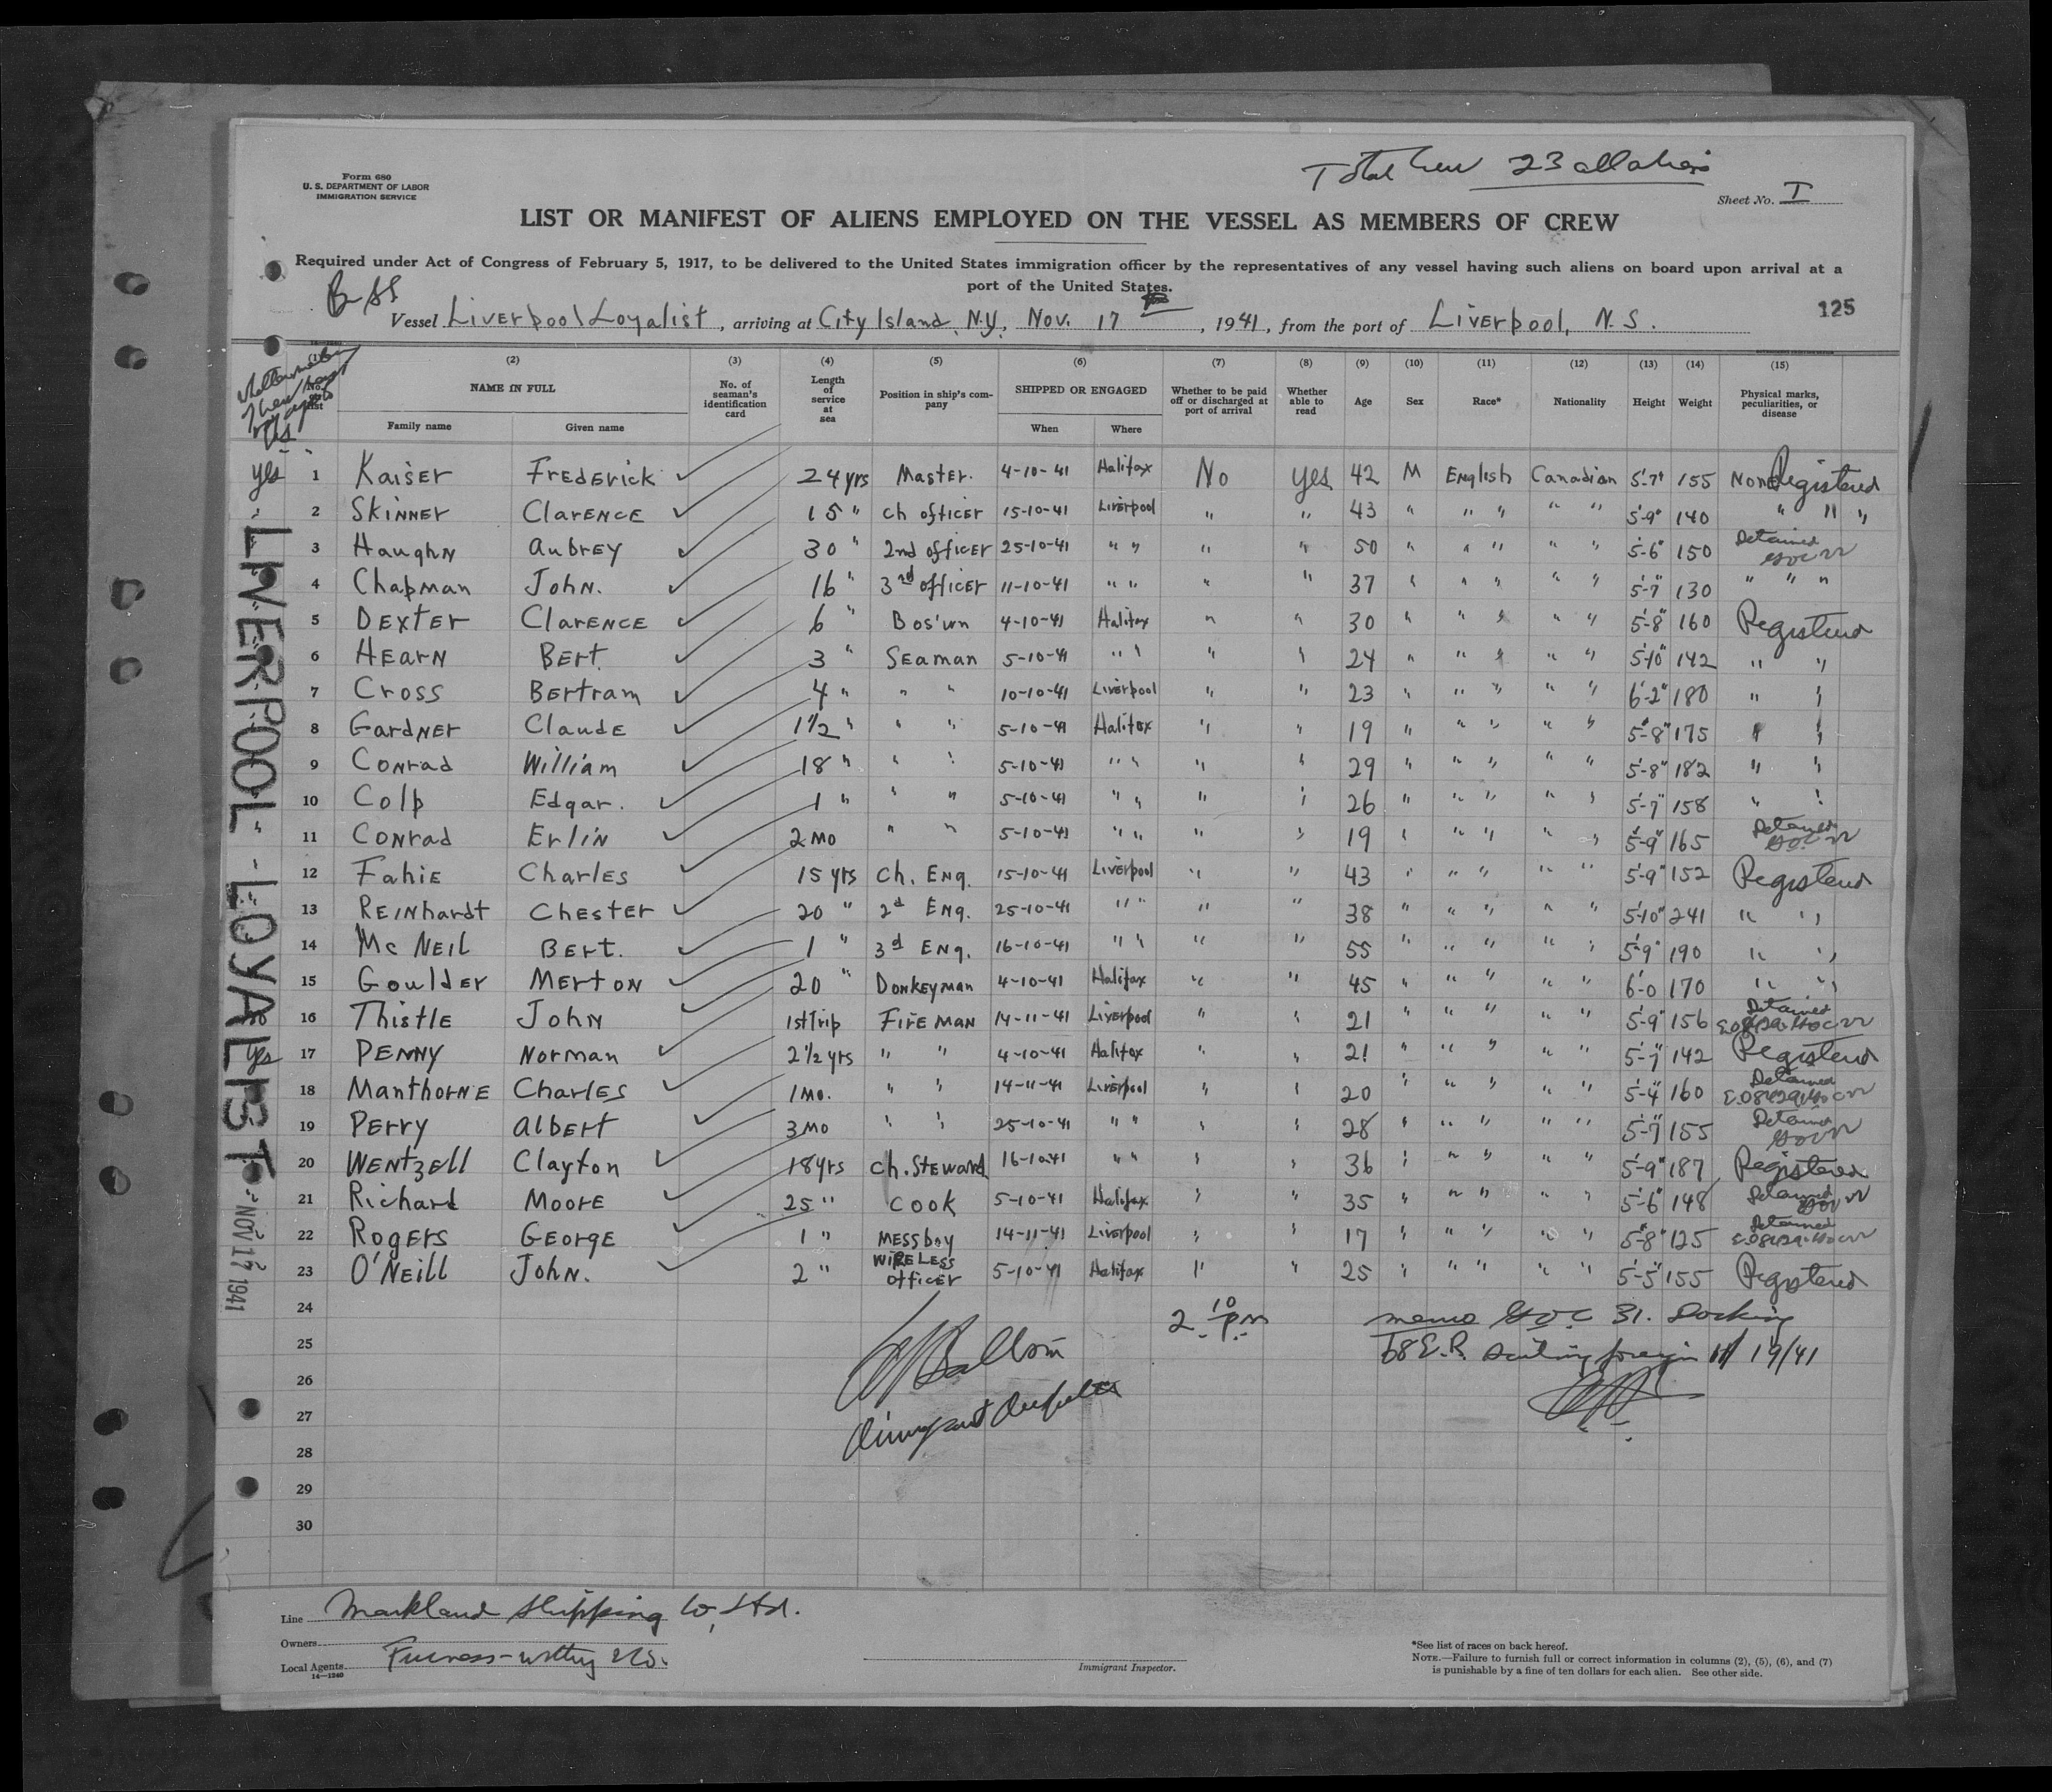 Total Crew 23 all aliens
Form 680
U. S. DEPARTMENT OF LABOR
IMMIGRATION SERVICE
Sheet No. I
LIST OR MANIFEST OF ALIENS EMPLOYED ON THE VESSEL AS MEMBERS OF CREW
Required under Act of Congress of February 5, 1917, to be delivered to the United States immigration officer by the representatives of any vessel having such aliens on board upon arrival at a
port of the United States.
Br SS
Vessel Liverpool Loyalist, arriving at City Island, N.Y., Nov. 17, 1941, from the port of Liverpool, N.S.
125
(1) (2) (3) (4) (5) (6) (7) (8) (9) (10) (11) (12) (13) (14) (15)
No. on list NAME IN FULL No. of seaman's identification card Length of service at sea Position in ship's company SHIPPED OR ENGAGED Whether to be paid off or discharged at port of arrival Whether able to read Age Sex Race* Nationality Height Weight Physical marks, peculiarities, or disease
Family name Given name When Where
yes 1 Kaiser Frederick ✓ 24 yrs Master. 4-10-41 Halifax No yes 42 M English Canadian 5'-7" 155 None Registered
" 2 Skinner Clarence ✓ 15 " ch officer 15-10-41 Liverpool " " 43 " " " " " 5'-9" 140 " " "
3 Haughn Aubrey ✓ 30 " 2nd officer 25-10-41 " " " " 50 " " " " " 5'-6" 150 Detained
4 Chapman John. ✓ 16 " 3rd officer 11-10-41 " " " " 37 " " " " " 5'-7" 130 " " "
5 Dexter Clarence ✓ 6 " Bos'wn 4-10-41 Halifax " " 30 " " " " " 5'-8" 160 Registered
6 Hearn Bert. ✓ 3 " Seaman 5-10-41 " " " " 24 " " " " " 5'-10" 142 " "
7 Cross Bertram ✓ 4 " " " 10-10-41 Liverpool " " 23 " " " " " 6'-2" 180 " "
8 Gardner Claude ✓ 1 1/2 " " " 5-10-41 Halifax " " 19 " " " " " 5'-8" 175 " "
9 Conrad William ✓ 18 " " " 5-10-41 " " " " 29 " " " " " 5'-8" 182 " "
10 Colp Edgar. ✓ 1 " " " 5-10-41 " " " " 26 " " " " " 5'-7" 158 " "
11 Conrad Erlin ✓ 2 mo " " 5-10-41 " " " " 19 " " " " " 5'-9" 165 Detained
12 Fahie Charles ✓ 15 yrs Ch. Eng. 15-10-41 Liverpool " " 43 " " " " " 5'-9" 152 Registered
13 Reinhardt Chester ✓ 20 " 2d Eng. 25-10-41 " " " " 38 " " " " " 5'-10" 241 " "
14 McNeil Bert. ✓ 1 " 3d Eng. 16-10-41 " " " " 55 " " " " " 5'-9" 190 " "
15 Goulder Merton ✓ 20 " Donkeyman 4-10-41 Halifax " " 45 " " " " " 6'-0 170 " "
16 Thistle John ✓ 1st Trip Fireman 14-11-41 Liverpool " " 21 " " " " " 5'-9" 156 Detained
yes 17 Penny Norman ✓ 2 1/2 yrs " " 4-10-41 Halifax " " 21 " " " " " 5'-7" 142 Registered
18 Manthorne Charles ✓ 1 mo. " " 14-11-41 Liverpool " " 20 " " " " " 5'-4" 160 Detained
19 Perry Albert ✓ 3 mo " " 25-10-41 " " " " 28 " " " " " 5'-7" 155 Detained
20 Wentzell Clayton ✓ 18 yrs Ch. Steward 16-10-41 " " " " 36 " " " " " 5'-9" 187 Registered
21 Richard Moore ✓ 25 " Cook 5-10-41 Halifax " " 35 " " " " " 5'-6" 148 Detained
22 Rogers George ✓ 1 " Messboy 14-11-41 Liverpool " " 17 " " " " " 5'-8" 125 Detained
23 O'Neill John. ✓ 2 " Wireless officer 5-10-41 Halifax " " 25 " " " " " 5'-5" 155 Registered
24
25
26
27
28
29
30
LIVERPOOL - LOYALIST - NOV 17 1941
2 10 P.M.
memo 31. Docking
68 E.R. sailing foreign 11/19/41
Line Markland Shipping Co, Ltd.
Owners
Local Agents Furness-Withy & Co.
14—1240
Immigrant Inspector.
*See list of races on back hereof.
NOTE.—Failure to furnish full or correct information in columns (2), (5), (6), and (7)
is punishable by a fine of ten dollars for each alien. See other side.